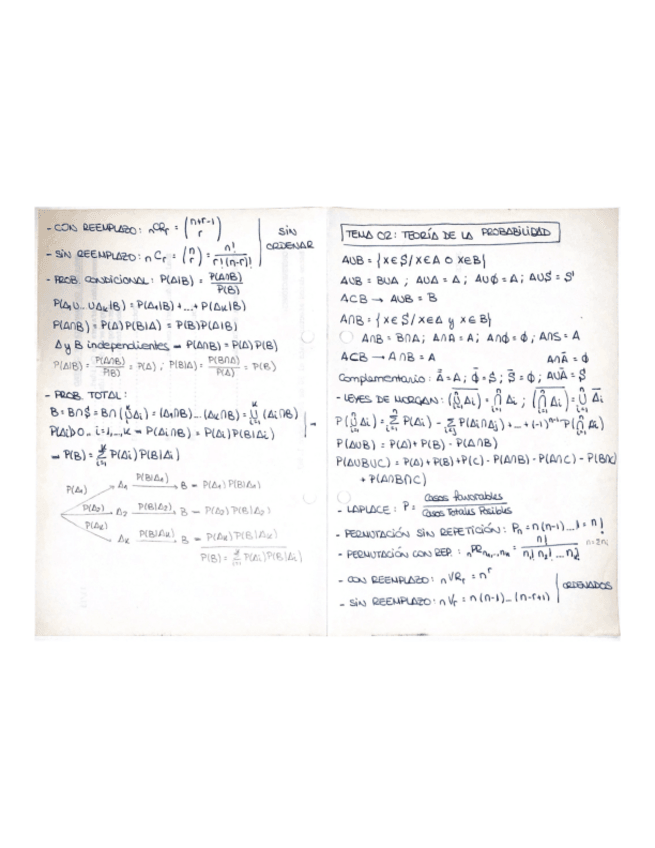 - CON REEMPLAZO: nCRr = (n+r-1 / r)
SIN ORDENAR
- SIN REEMPLAZO: nCr = (n / r) = n! / r!(n-r)!
- PROB. CONDICIONAL: P(A|B) = P(A∩B) / P(B)
P(A₁∪...∪Aₖ|B) = P(A₁|B) + ... + P(Aₖ|B)
P(A∩B) = P(A)P(B|A) = P(B)P(A|B)
A y B independientes → P(A∩B) = P(A)P(B)
P(A|B) = P(A∩B) / P(B) = P(A) ; P(B|A) = P(B∩A) / P(A) = P(B)
- PROB. TOTAL:
B = B∩S = B∩(∪Ai) = (A₁∩B)...(Aₖ∩B) = ∪(Ai∩B)
P(Ai)>0.. i=1,..,k → P(Ai∩B) = P(Ai)P(B|Ai)
→ P(B) = Σ P(Ai)P(B|Ai)
P(A₁) A₁ P(B|A₁) B → P(A₁)P(B|A₁)
P(A₂) A₂ P(B|A₂) B → P(A₂)P(B|A₂)
P(Aₖ) Aₖ P(B|Aₖ) B → P(Aₖ)P(B|Aₖ)
P(B) = Σ P(Ai)P(B|Ai)
TEMA 02: TEORÍA DE LA PROBABILIDAD
A∪B = {x∈S/x∈A O x∈B}
A∪B = B∪A ; A∪A = A ; A∪Φ = A ; A∪S = S
A⊂B → A∪B = B
A∩B = {x∈S/x∈A y x∈B}
A∩B = B∩A ; A∩A = A ; A∩Φ = Φ ; A∩S = A
A⊂B → A∩B = A A∩Ā = Φ
Complementario: A̿ = A ; Φ̄ = S ; S̄ = Φ ; A∪Ā = S
- LEYES DE MORGAN: (∪Ai)‾ = ∩Āi ; (∩Ai)‾ = ∪Āi
P(∪Ai) = Σ P(Ai) - Σ P(Ai∩Aj) + ... + (-1)ⁿ⁻¹ P(∩Ai)
P(A∪B) = P(A) + P(B) - P(A∩B)
P(A∪B∪C) = P(A) + P(B) + P(C) - P(A∩B) - P(A∩C) - P(B∩C)
+ P(A∩B∩C)
- LAPLACE: P = Casos favorables / Casos Totales Posibles
- PERMUTACIÓN SIN REPETICIÓN: Pn = n(n-1)...1 = n!
- PERMUTACIÓN CON REP.: nPRn₁...n = n! / n₁!n₂!... n=Σni
- CON REEMPLAZO: nVRr = nʳ
ORDENADOS
- SIN REEMPLAZO: nVr = n(n-1)...(n-r+1)